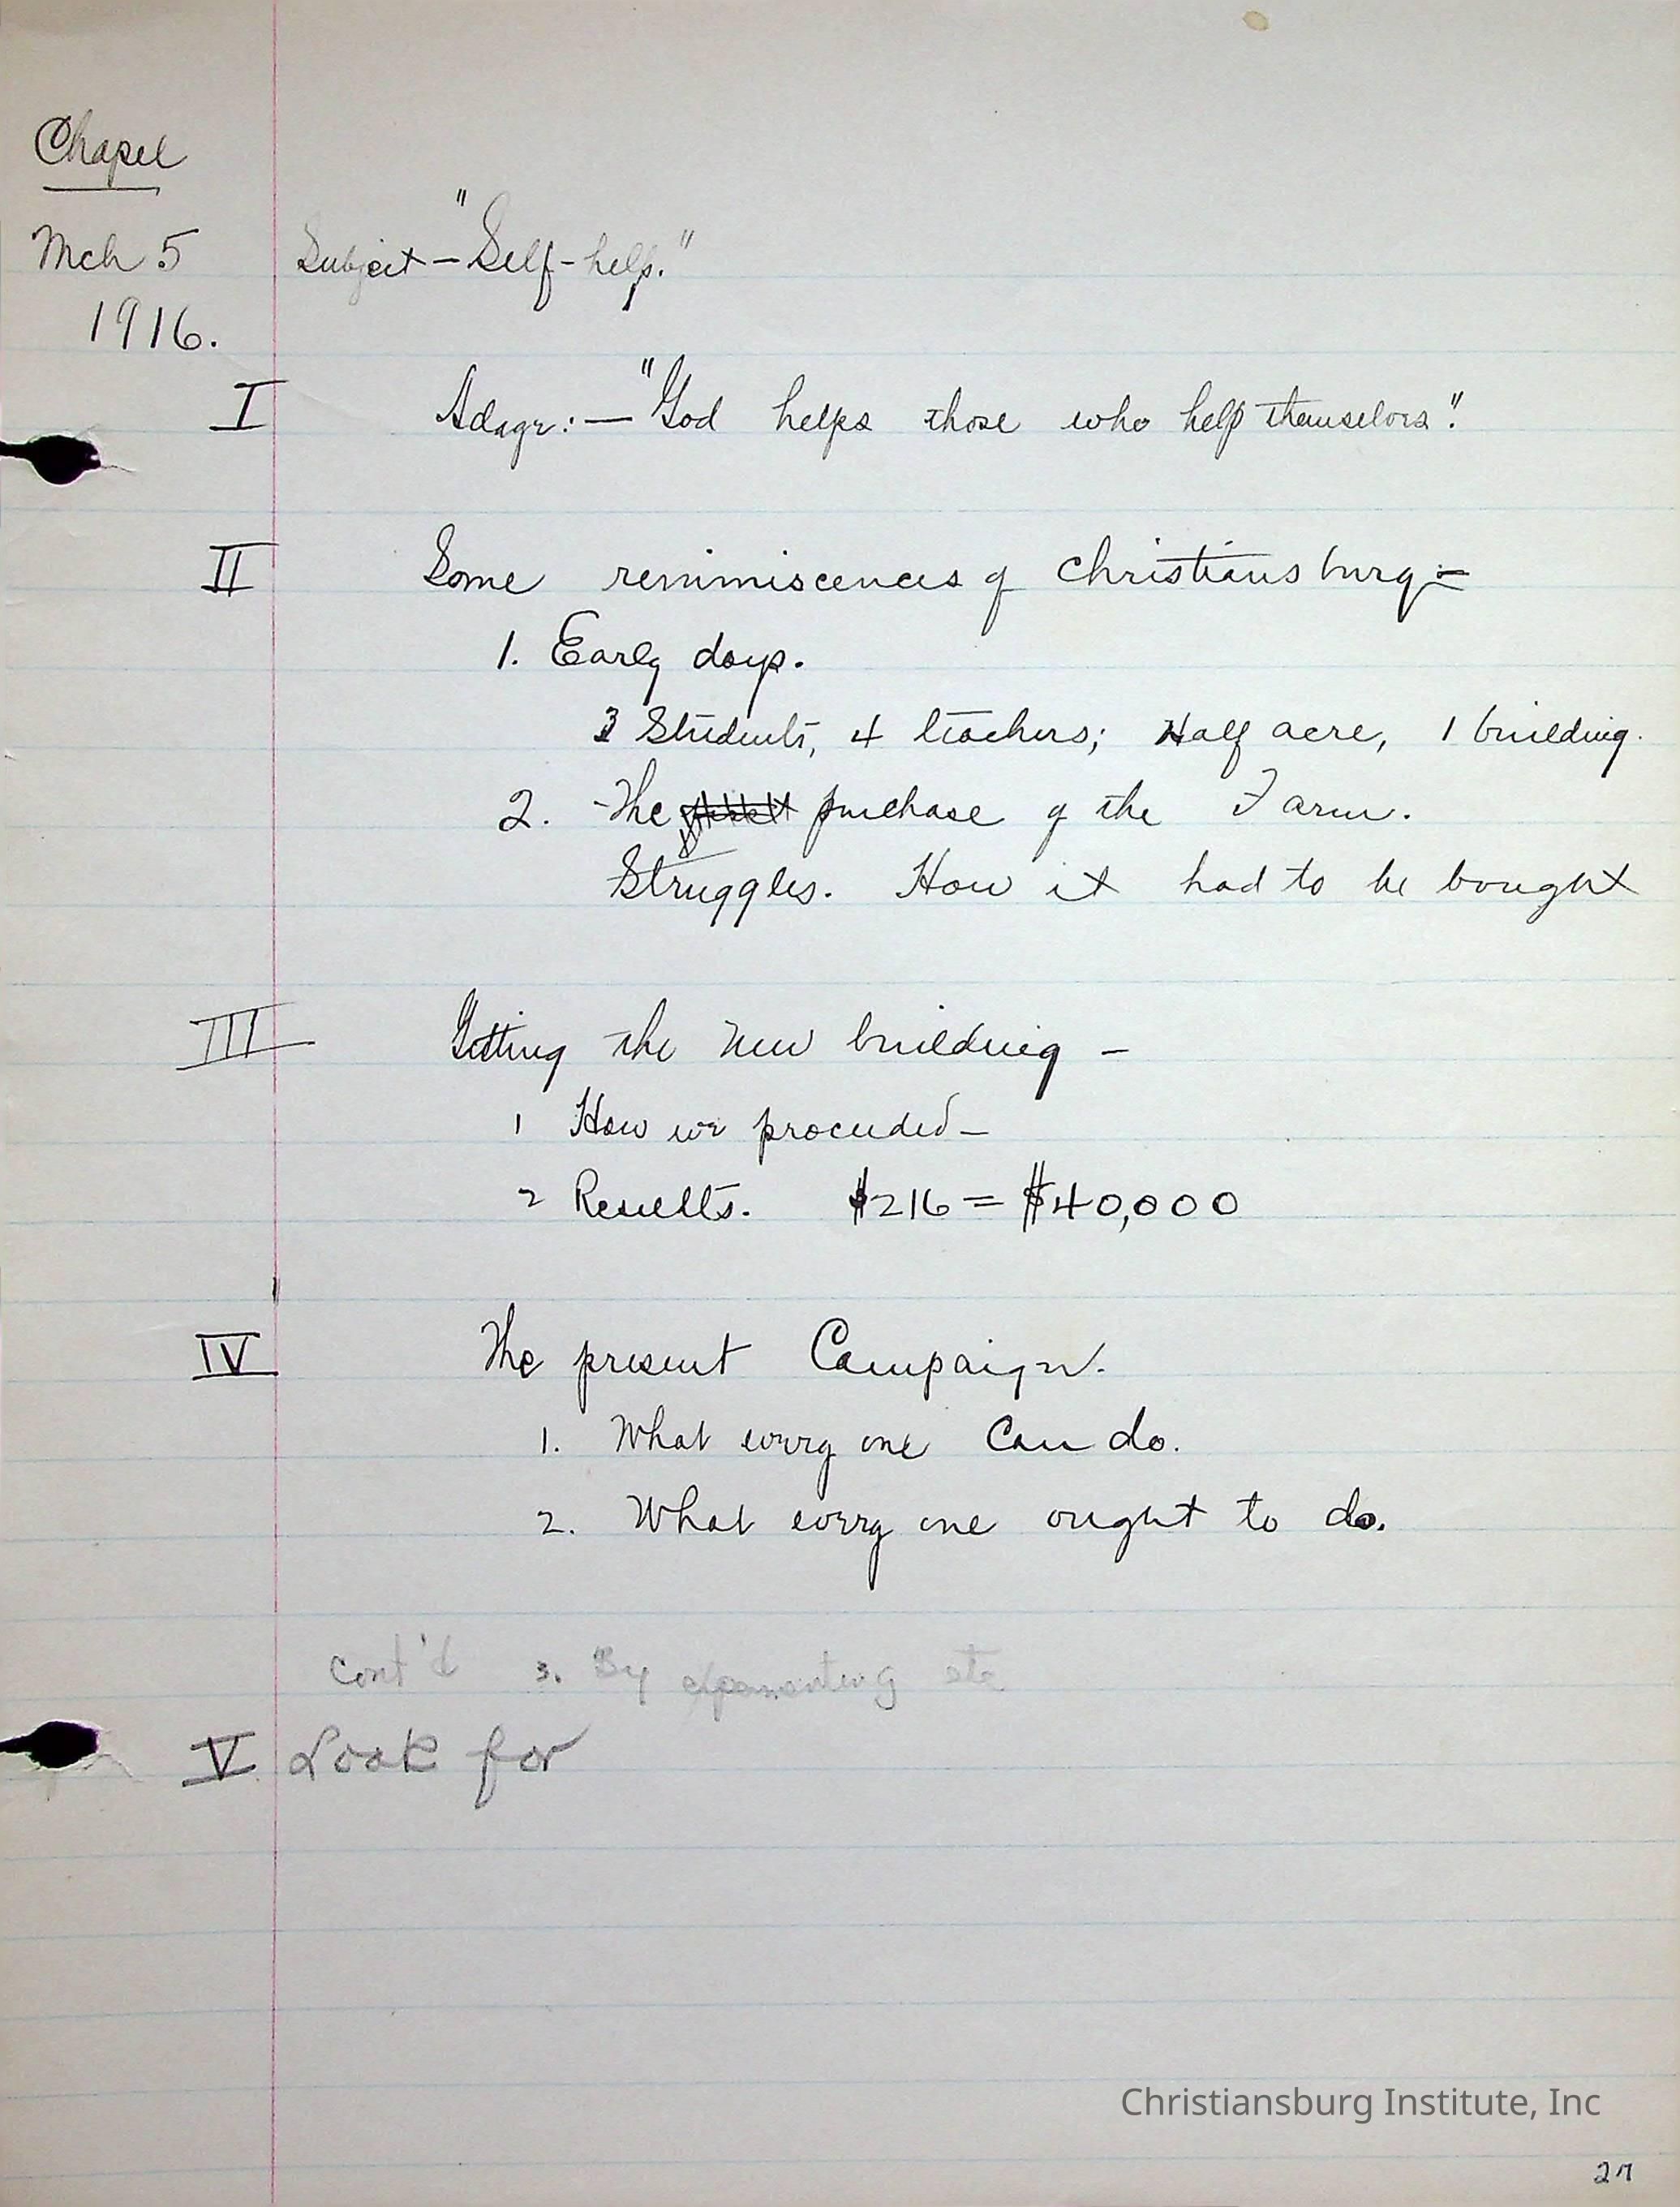 Chapel
Mch 5
1916.
Subject - "Self-help."
I Adage:— "God helps those who help themselves."
II Some reminiscences of Christiansburg -
1. Early days.
3 Students, 4 teachers; Half acre, 1 building.
2. The purchase of the Farm.
Struggles. How it had to be bought
III Getting the new building -
1 How we proceeded -
2 Results. $216 = $40,000
IV The present Campaign.
1. What every one can do.
2. What every one ought to do.
cont'd 3. By etc
V Look for
Christiansburg Institute, Inc
27